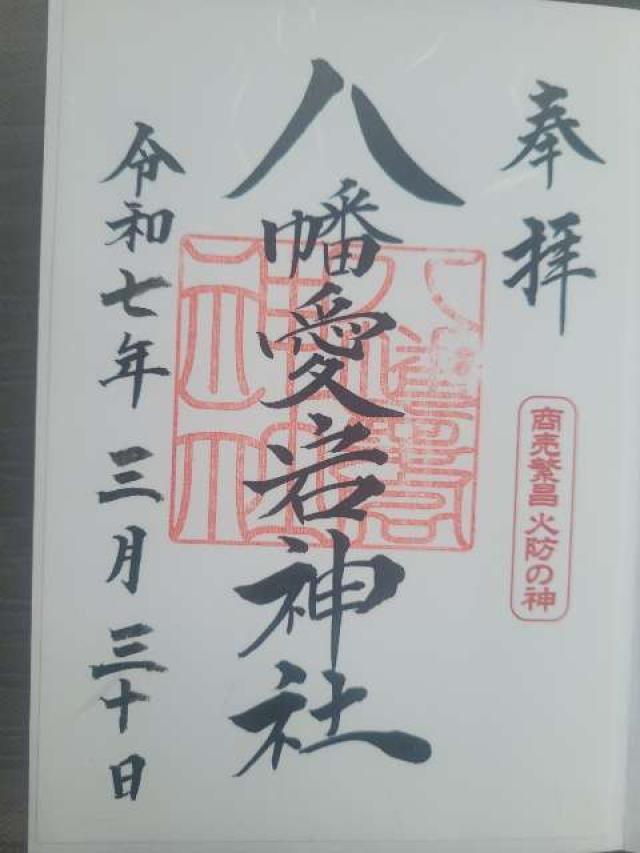 奉拝
商売繁昌 火防の神
八幡愛宕神社
令和七年 三月 三十日